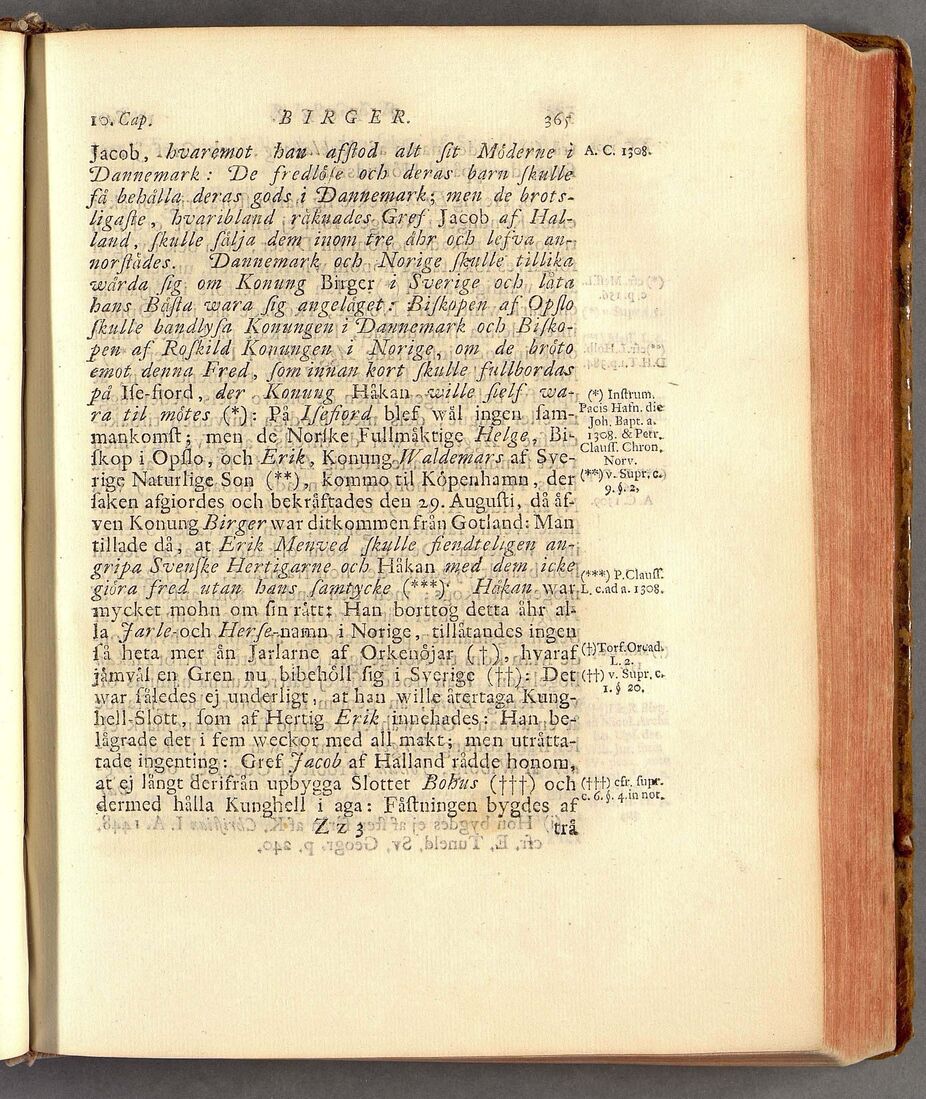 10. Cap. BIRGER. 365
Jacob, hvaremot han afſtod alt ſit Móderne i
Dannemark: De fredlôſe och deras barn ſkulle
få behålla deras gods i Dannemark; men de brots-
ligaſte, hvaribland räknades Gref Jacob af Hal-
land, ſkulle ſälja dem inom tre åhr och lefva an-
norſtädes. Dannemark och Norige ſkulle tillika
wårda ſig om Konung Birger i Sverige och låta
hans Bäſta wara ſig angeläget: Biſkopen af Opſlo
ſkulle bandlyſa Konungen i Dannemark och Biſko-
pen af Roſkild Konungen i Norige, om de bröto
emot denna Fred, ſom innan kort ſkulle fullbordas
på Iſe-fiord, der Konung Håkan wille ſielf wa-
ra til mötes (*): På Iſefiord blef wäl ingen ſam-
mankomſt; men de Norſke Fullmäktige Helge, Bi-
ſkop i Opſlo, och Erik, Konung Waldemars af Sve-
rige Naturlige Son (**), kommo til Köpenhamn, der
ſaken afgiordes och bekräftades den 29. Auguſti, då äf-
ven Konung Birger war ditkommen från Gotland: Man
tillade då, at Erik Menved ſkulle fiendteligen an-
gripa Svenſke Hertigarne och Håkan med dem icke
giöra fred utan hans ſamtycke (***): Håkan war
mycket mohn om ſin rätt: Han borttog detta åhr al-
la Jarle-och Herſe-namn i Norige, tillåtandes ingen
få heta mer än Jarlarne af Orkenöjar (†), hvaraf
jämväl en Gren nu bibehöll ſig i Sverige (††): Det
war ſåledes ej underligt, at han wille återtaga Kung-
hell-Slott, ſom af Hertig Erik innehades: Han be-
lägrade det i fem weckor med all makt; men uträtta-
tade ingenting: Gref Jacob af Halland rådde honom,
at ej långt derifrån upbygga Slottet Bohus (†††) och
dermed hålla Kunghell i aga: Fäſtningen bygdes af
Z z 3 trä
A. C. 1308.
(*) Inſtrum.
Pacis Hafn. die
Joh. Bapt. a.
1308. & Petr.
Clauſſ. Chron.
Norv.
(**) v. Supr. c.
9. §. 2,
(***) P. Clauſſ.
L. c. ad a. 1308.
(†) Torf. Orcad.
L. 2.
(††) v. Supr. c.
1. § 20.
(†††) cfr. ſupr.
c. 6. §. 4. in not.